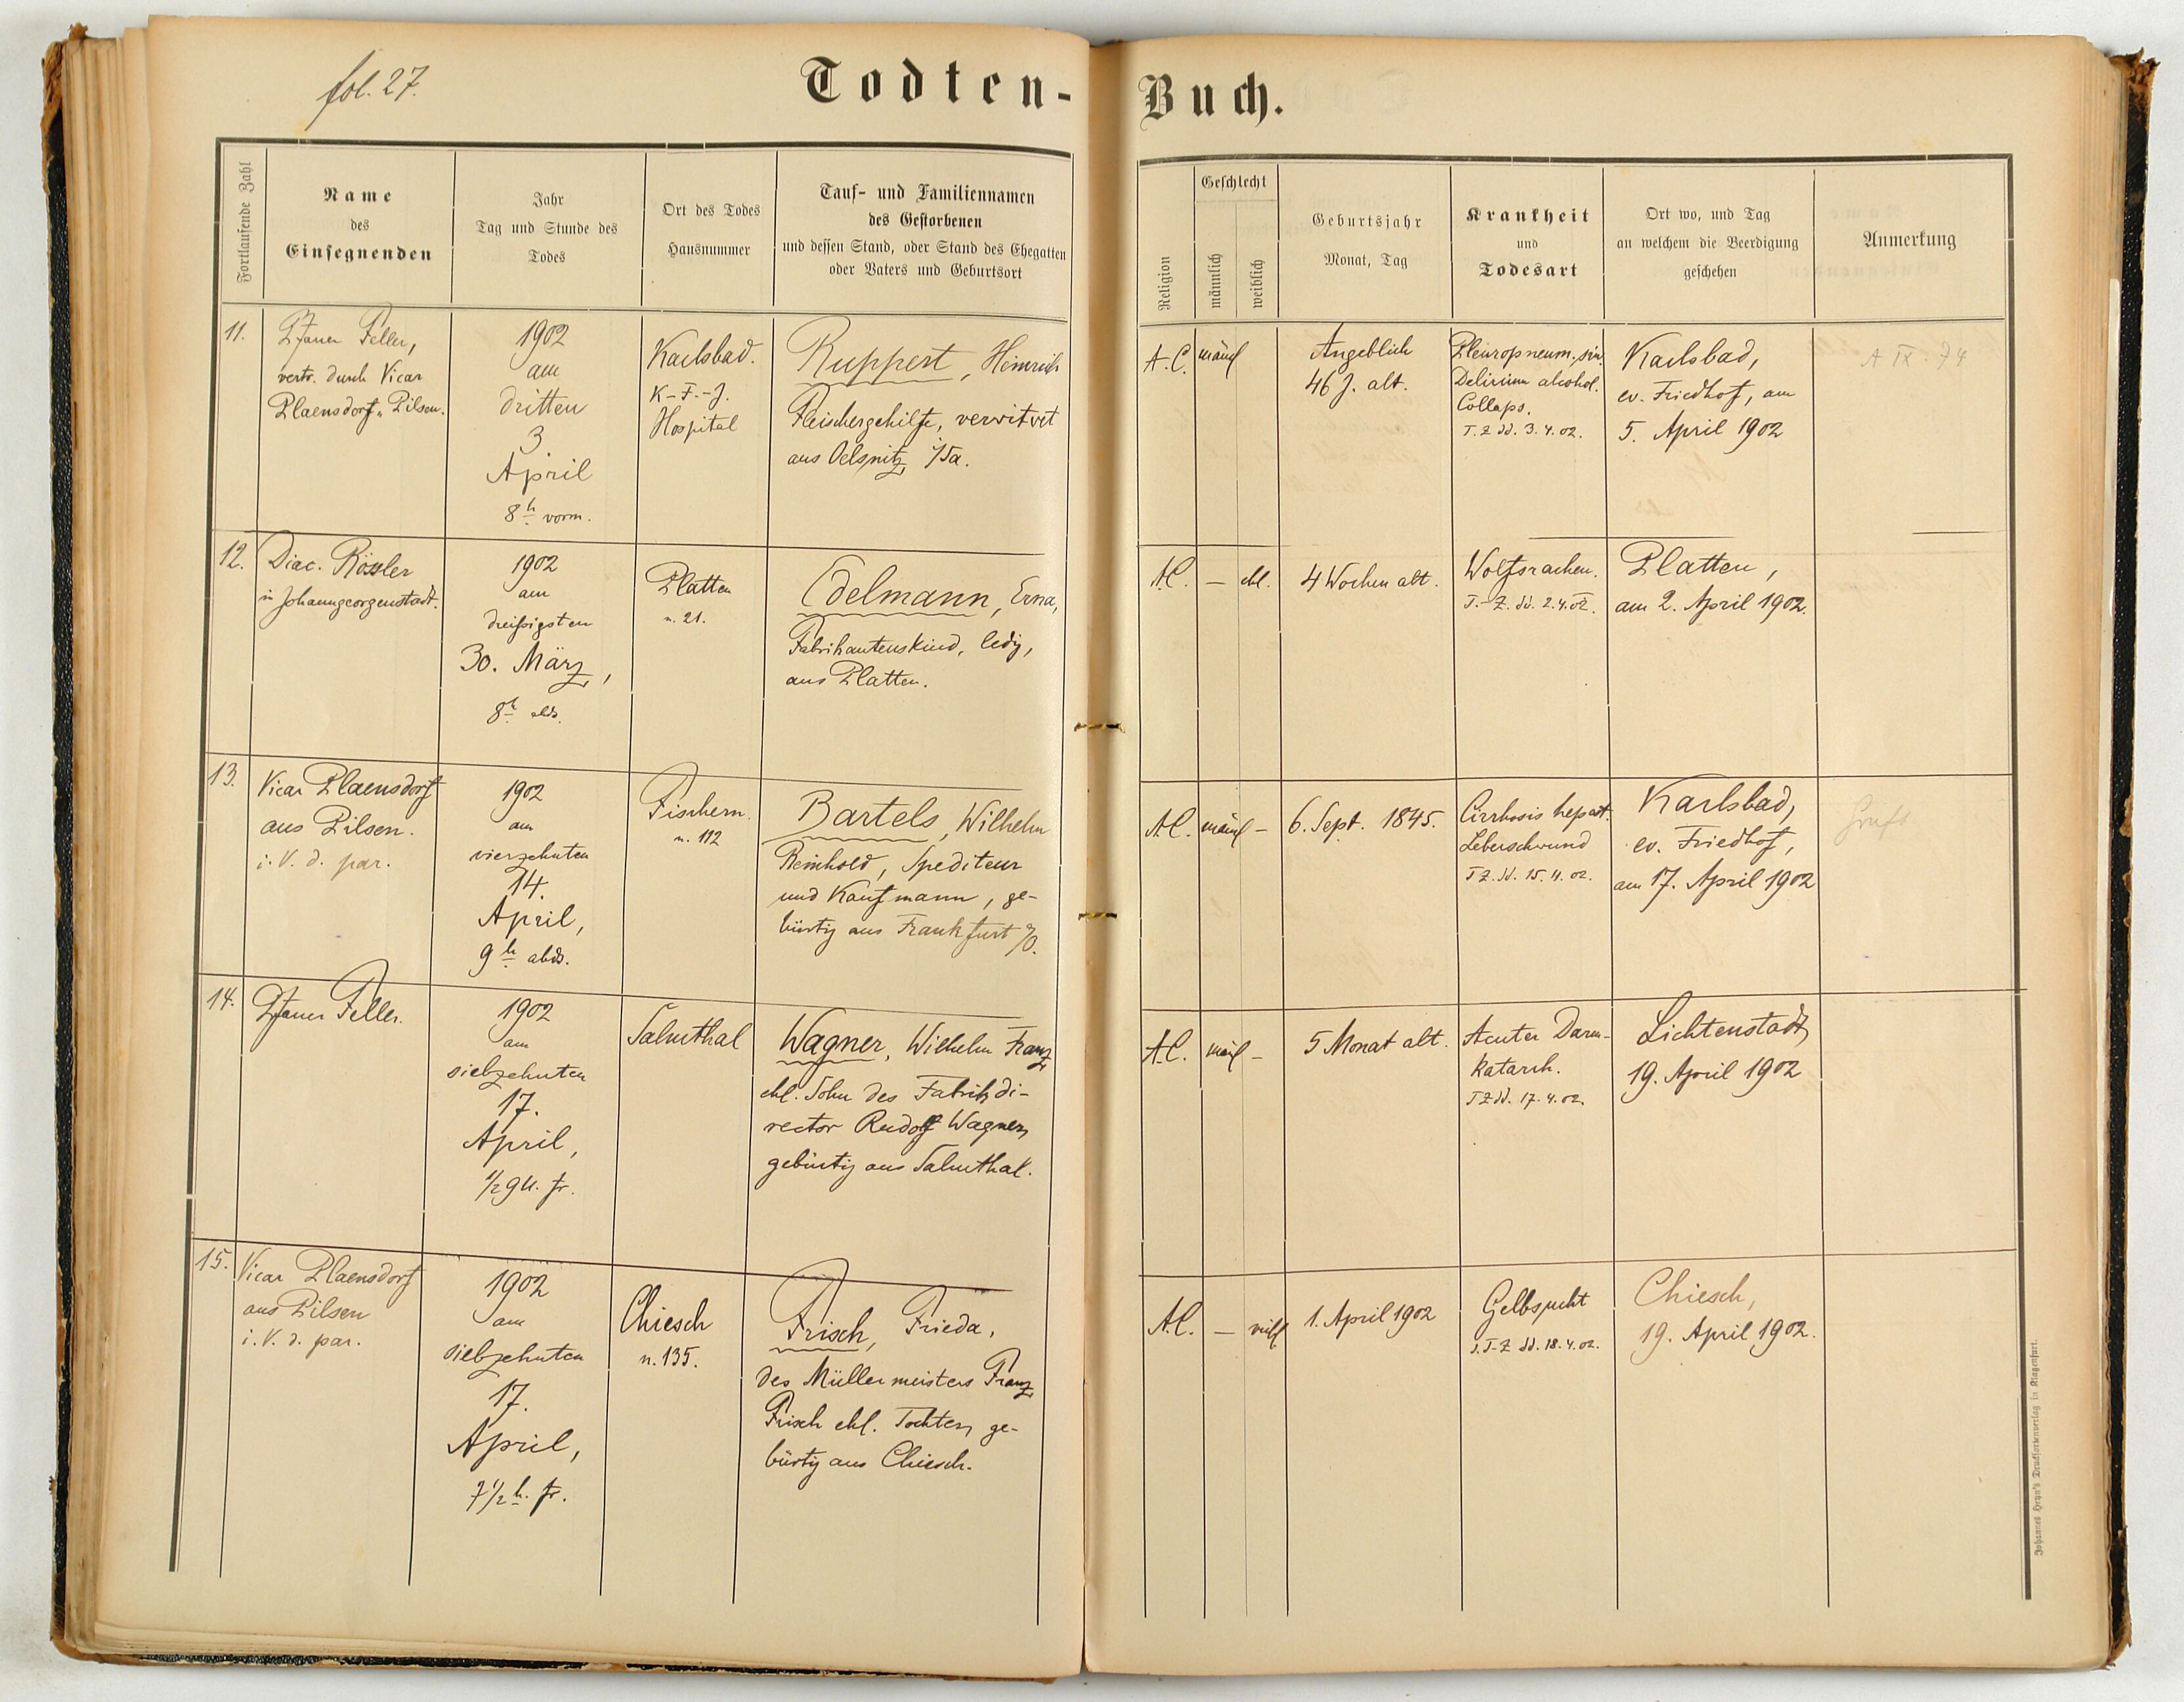 fol. 27.
Todten-
Buch.
Fortlaufende Zahl
Name
des
Einsegnenden
Jahr
Tag und Stunde des
Todes
Ort des Todes
Hausnummer
Tauf- und Familiennamen
des Gestorbenen
und dessen Stand, oder Stand des Ehegatten
oder Vaters und Geburtsort
Religion
Geschlecht
männlich
weiblich
Geburtsjahr
Monat, Tag
Krankheit
und
Todesart
Ort wo, und Tag
an welchem die Beerdigung
geschehen
Anmerkung
11.
Pfarrer Feller,
vertr. durch Vicar
Plaensdorf, Pilsen.
1902
am
dritten
3
April
8h vorm.
Karlsbad.
K-F.-J.
Hospital
Ruppert, Heinrich
Fleischergehilfe, verwitwet
aus Oelsnitz i/Sa.
A.C.
männl
Angeblich
46 J. alt.
Pleuropneum. sin.
Delirium alcohol.
Collaps.
T.Z dd. 3.4.02.
Karlsbad,
ev. Friedhof, am
5. April 1902
A IX. 74
12.
Diac. Rössler
in Johanngeorgenstadt.
1902
am
dreißigsten
30. März,
8h abds.
Platten
n. 21.
Edelmann, Erna,
Fabrikantenskind, ledig,
aus Platten.
A.C.
—
4 Wochen alt.
Wolfsrachen.
T.-Z. dd. 2.4.02.
Platten,
am 2. April 1902.
13.
Vicar Plaensdorf
aus Pilsen.
i. V. d. par.
1902
am
vierzehnten
14.
April,
9h abds.
Fischern
n. 112
Bartels, Wilhelm
Reinhold, Spediteur
und Kaufmann, ge-
bürtig aus Frankfurt a/O.
A.C.
männl —
6. Sept. 1845.
Cirrhosis hepat.
Leberschwund
T Z. dd. 15.4.02.
Karlsbad,
ev. Friedhof,
am 17. April 1902
Gruft
14.
Pfarrer Feller.
1902
am
siebzehnten
17.
April,
1/2 9 U. fr.
Salmthal
Wagner, Wilhelm Franz
ehl. Sohn des Fabrikdi-
rector Rudolf Wagner,
gebürtig aus Salmthal.
A.C.
männl —
5 Monat alt.
Acuter Darm-
katarrh.
T Z dd. 17.4.02.
Lichtenstadt,
19. April 1902
15.
Vicar Plaensdorf
aus Pilsen
i. V. d. par.
1902
am
siebzehnten
17.
April,
7 1/2 h. fr.
Chiesch
n. 135.
Frisch, Frieda,
des Müllermeisters Franz
Frisch ehl. Tochter, ge-
bürtig aus Chiesch.
A.C.
— weibl
1. April 1902
Gelbsucht
T-Z dd. 18.4.02.
Chiesch,
19. April 1902.
Johannes Heyn's Drucksortenverlag in Klagenfurt.